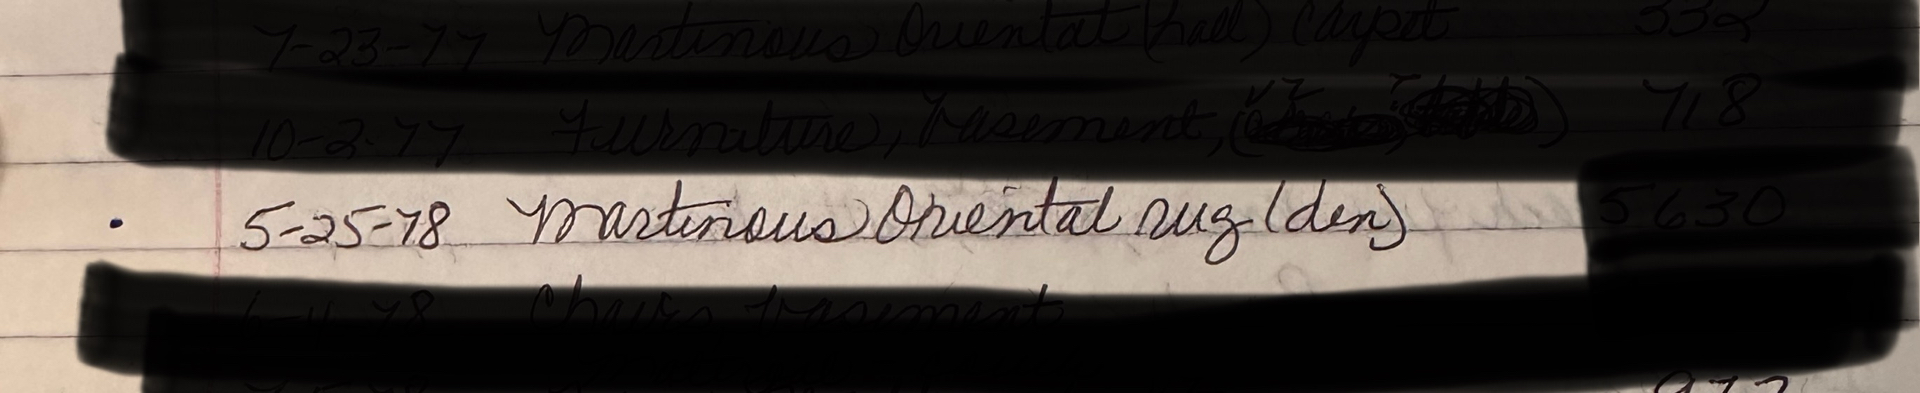 7-23-77 Martinous Oriental (hall) Carpet 332
10-2-77 Furniture, basement, 718
5-25-78 Martinous Oriental rug (den) 5630
78 Chairs basement